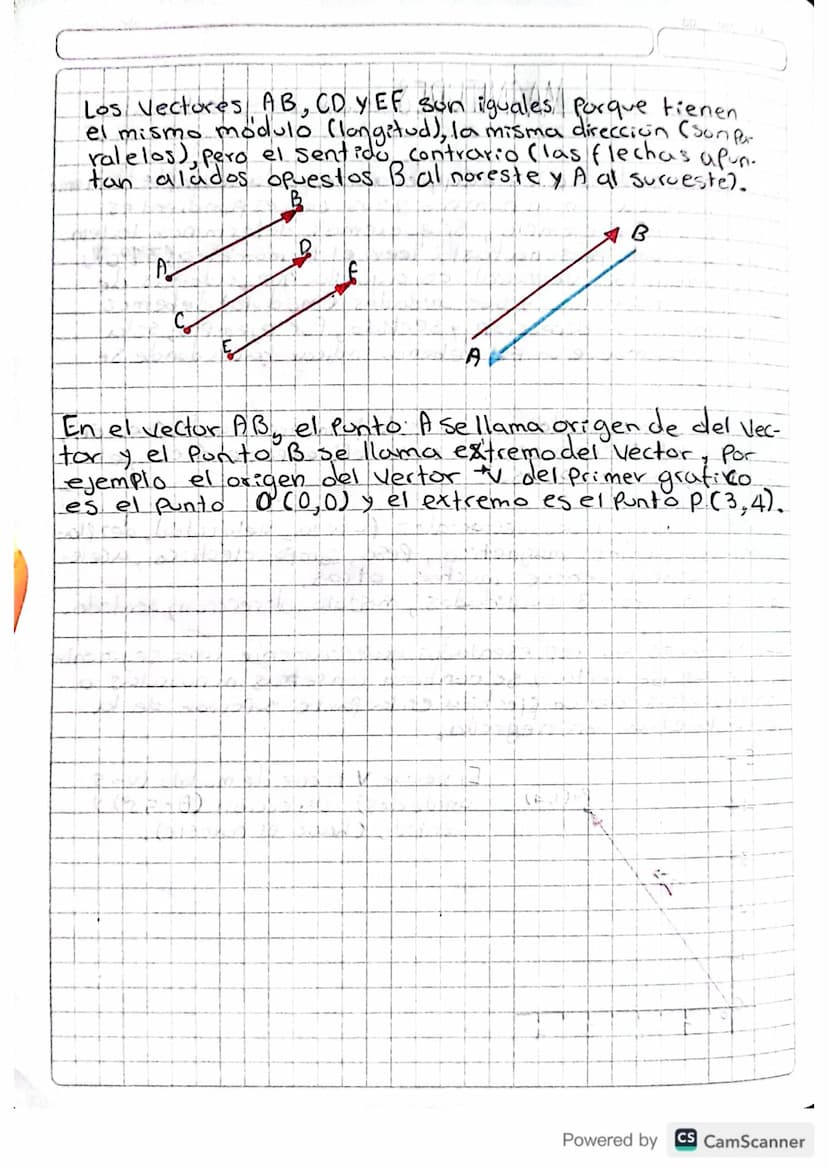 Los Vectores AB, CD y EF son iguales porque tienen
el mismo módulo (longitud), la misma dirección (son pa-
ralelos), pero el sentido contrario (las flechas apun-
tan alados opuestos B al noreste y A al suroeste).
B
A
D
C
F
E
B
A
En el vector AB, el punto A se llama origen de del Vec-
tor y el punto B se llama extremo del vector, por
ejemplo el origen del vector →v del primer grafico
es el punto O(0,0) y el extremo es el punto P(3,4).
Powered by CS CamScanner